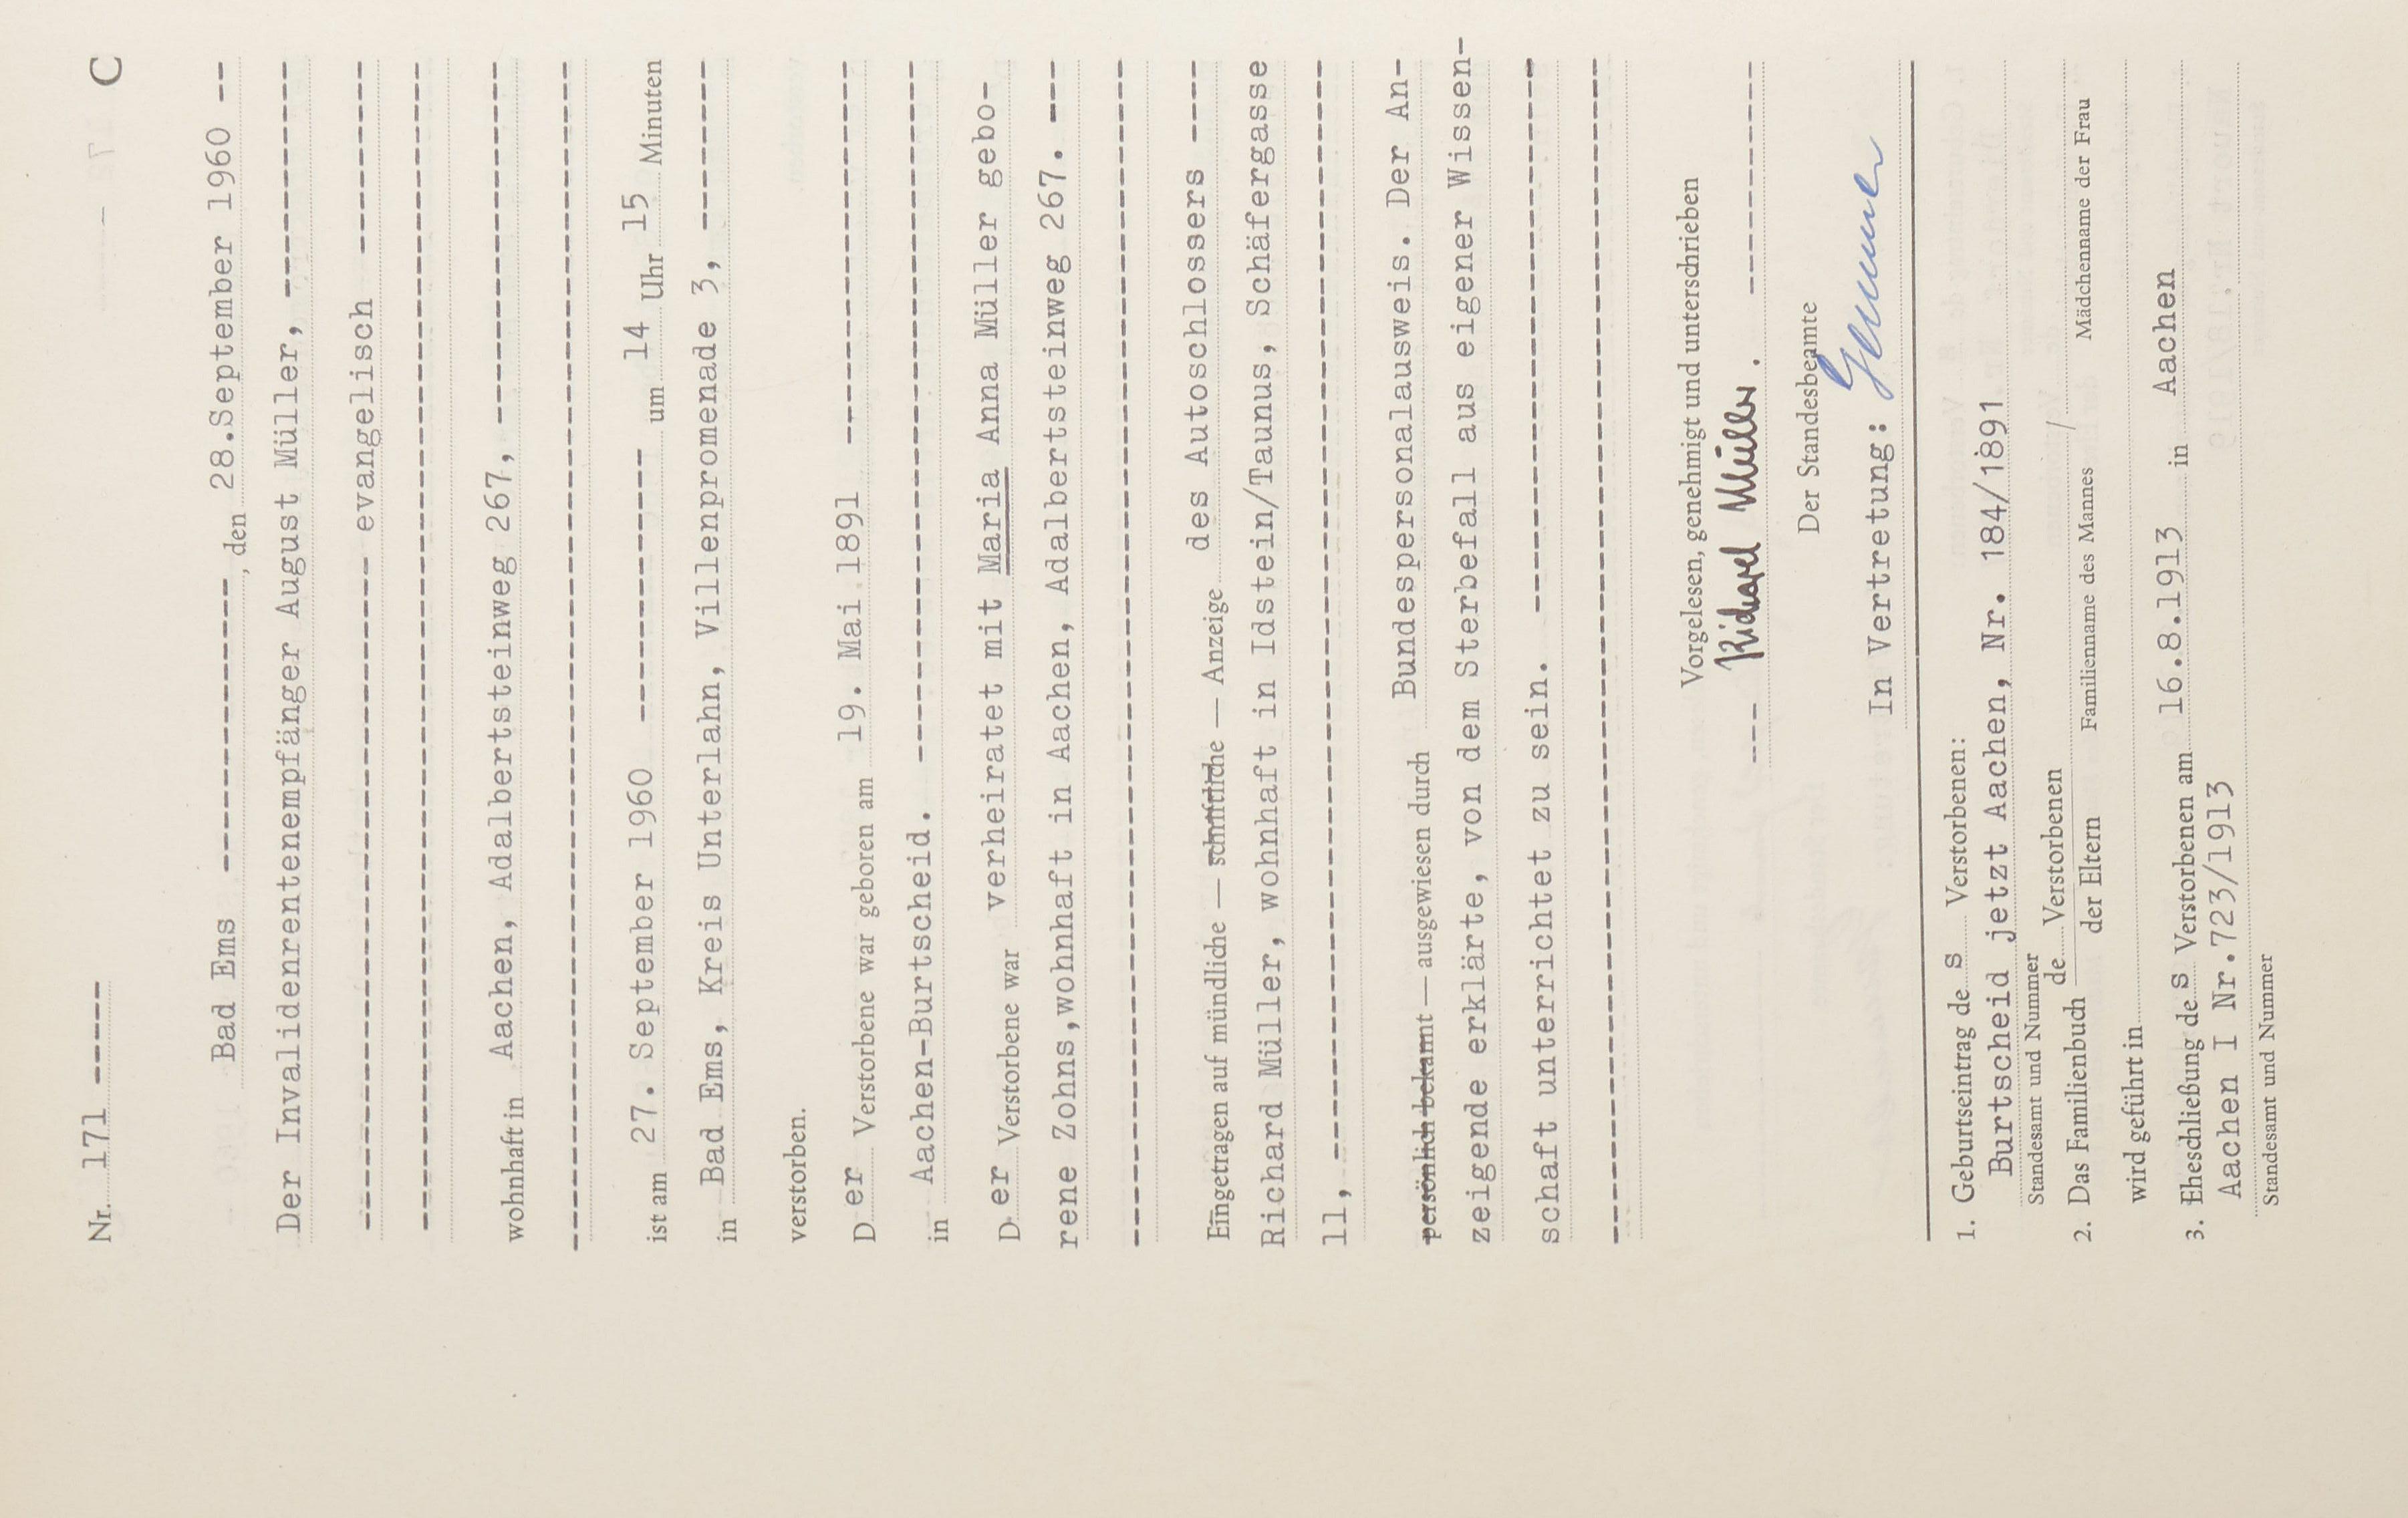 Nr. 171 ----- C
Bad Ems --------------, den 28.September 1960 --
Der Invalidenrentenempfänger August Müller, -----------
---------------- evangelisch ---------
--------------------------------------------------------
wohnhaft in Aachen, Adalbertsteinweg 267, -----------------
--------------------------------------------------------
ist am 27. September 1960 ------------- um 14 Uhr 15 Minuten
in Bad Ems, Kreis Unterlahn, Villenpromenade 3, --------
verstorben.
Der Verstorbene war geboren am 19. Mai 1891 ------------------
in Aachen-Burtscheid. ---------------------------------
Der Verstorbene war verheiratet mit Maria Anna Müller gebo-
rene Zohns,wohnhaft in Aachen, Adalbertsteinweg 267. ---
--------------------------------------------------------
Eingetragen auf mündliche — schriftliche — Anzeige des Autoschlossers ----
Richard Müller, wohnhaft in Idstein/Taunus, Schäfergasse
11, ----------------------------------------------------
persönlich bekannt — ausgewiesen durch Bundespersonalausweis. Der An-
zeigende erklärte, von dem Sterbefall aus eigener Wissen-
schaft unterrichtet zu sein. --------------------------
--------------------------------------------------------
Vorgelesen, genehmigt und unterschrieben
--- Richard Müller. -----------
Der Standesbeamte
In Vertretung:
1. Geburtseintrag des Verstorbenen:
Burtscheid jetzt Aachen, Nr. 184/1891
Standesamt und Nummer
2. Das Familienbuch de Verstorbenen / der Eltern /
Familienname des Mannes Mädchenname der Frau
wird geführt in
3. Eheschließung des Verstorbenen am 16.8.1913 in Aachen
Aachen I Nr.723/1913
Standesamt und Nummer